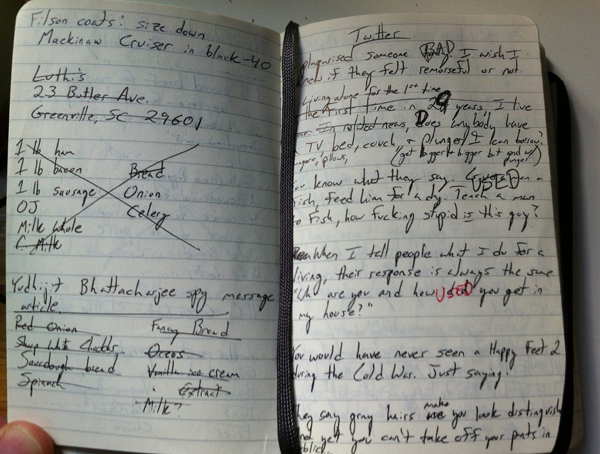 Filson coats: size down
Mackinaw Cruiser in black - 40
Luthi's
23 Butler Ave.
Greenville, SC 29601
1 lb ham
1 lb bacon
1 lb sausage
OJ
Milk whole
C. Milk
Bread
Onion
Celery
Yudhijit Bhattacharjee spy message
article
Red Onion
Sharp White Cheddar
Sourdough bread
Spinach
Fancy Bread
Oreos
Vanilla ice cream
Extract
Milk?
Twitter
plagiarised someone BAD I wish I
if they felt remorseful or not
Living alone for the 1st time
the first time in 29 years, I've
In related news, Does anybody have
TV, bed, couch & plunger I can borrow?
(got bigger & bigger but end w/
plunger)
know what they say. Give a man a
USED
fish, feed him for a day. Teach a man
to fish, how fucking stupid is this guy?
When I tell people what I do for a
living, their response is always the same.
"Who are you and how did you get in
USED
my house?"
You would have never seen a Happy Feet 2
during the Cold War. Just saying.
They say gray hairs make you look distinguished
and yet you can't take off your pants in
public.